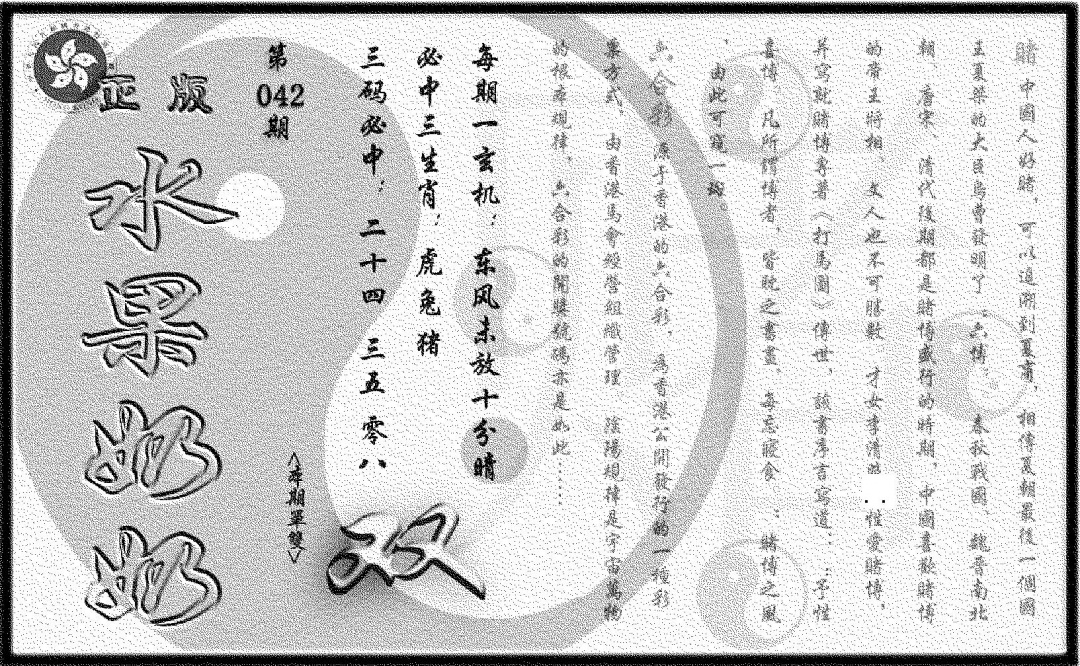 賭 中國人好賭，可以追溯到夏商，相傳夏朝最後一個國
王夏桀的大臣烏曹發明了：六博。 春秋戰國、魏晉南北
朝、唐宋、清代後期都是賭博盛行的時期，中國喜歡賭博
的帝王將相 文人也不可勝數 才女李清照 .. 性愛賭博，
并寫就賭博專著〈打馬圖〉傳世，該書序言寫道：：予性
喜博，凡所謂博者，皆耽之晝夜，每忘寢食 ：賭博之風
，由此可窺一斑。
六合彩 源于香港的六合彩，為香港公開發行的一種彩
票方式，由香港馬會經營組織管理 陰陽規律是宇宙萬物
的根本規律，六合彩的開獎號碼亦是如此……
每期一玄机：东风未放十分晴
必中三生肖：虎兔猪
三码必中：二十四 三五 零八
第
042
期
〈本期單雙〉
双
正版
水果奶奶